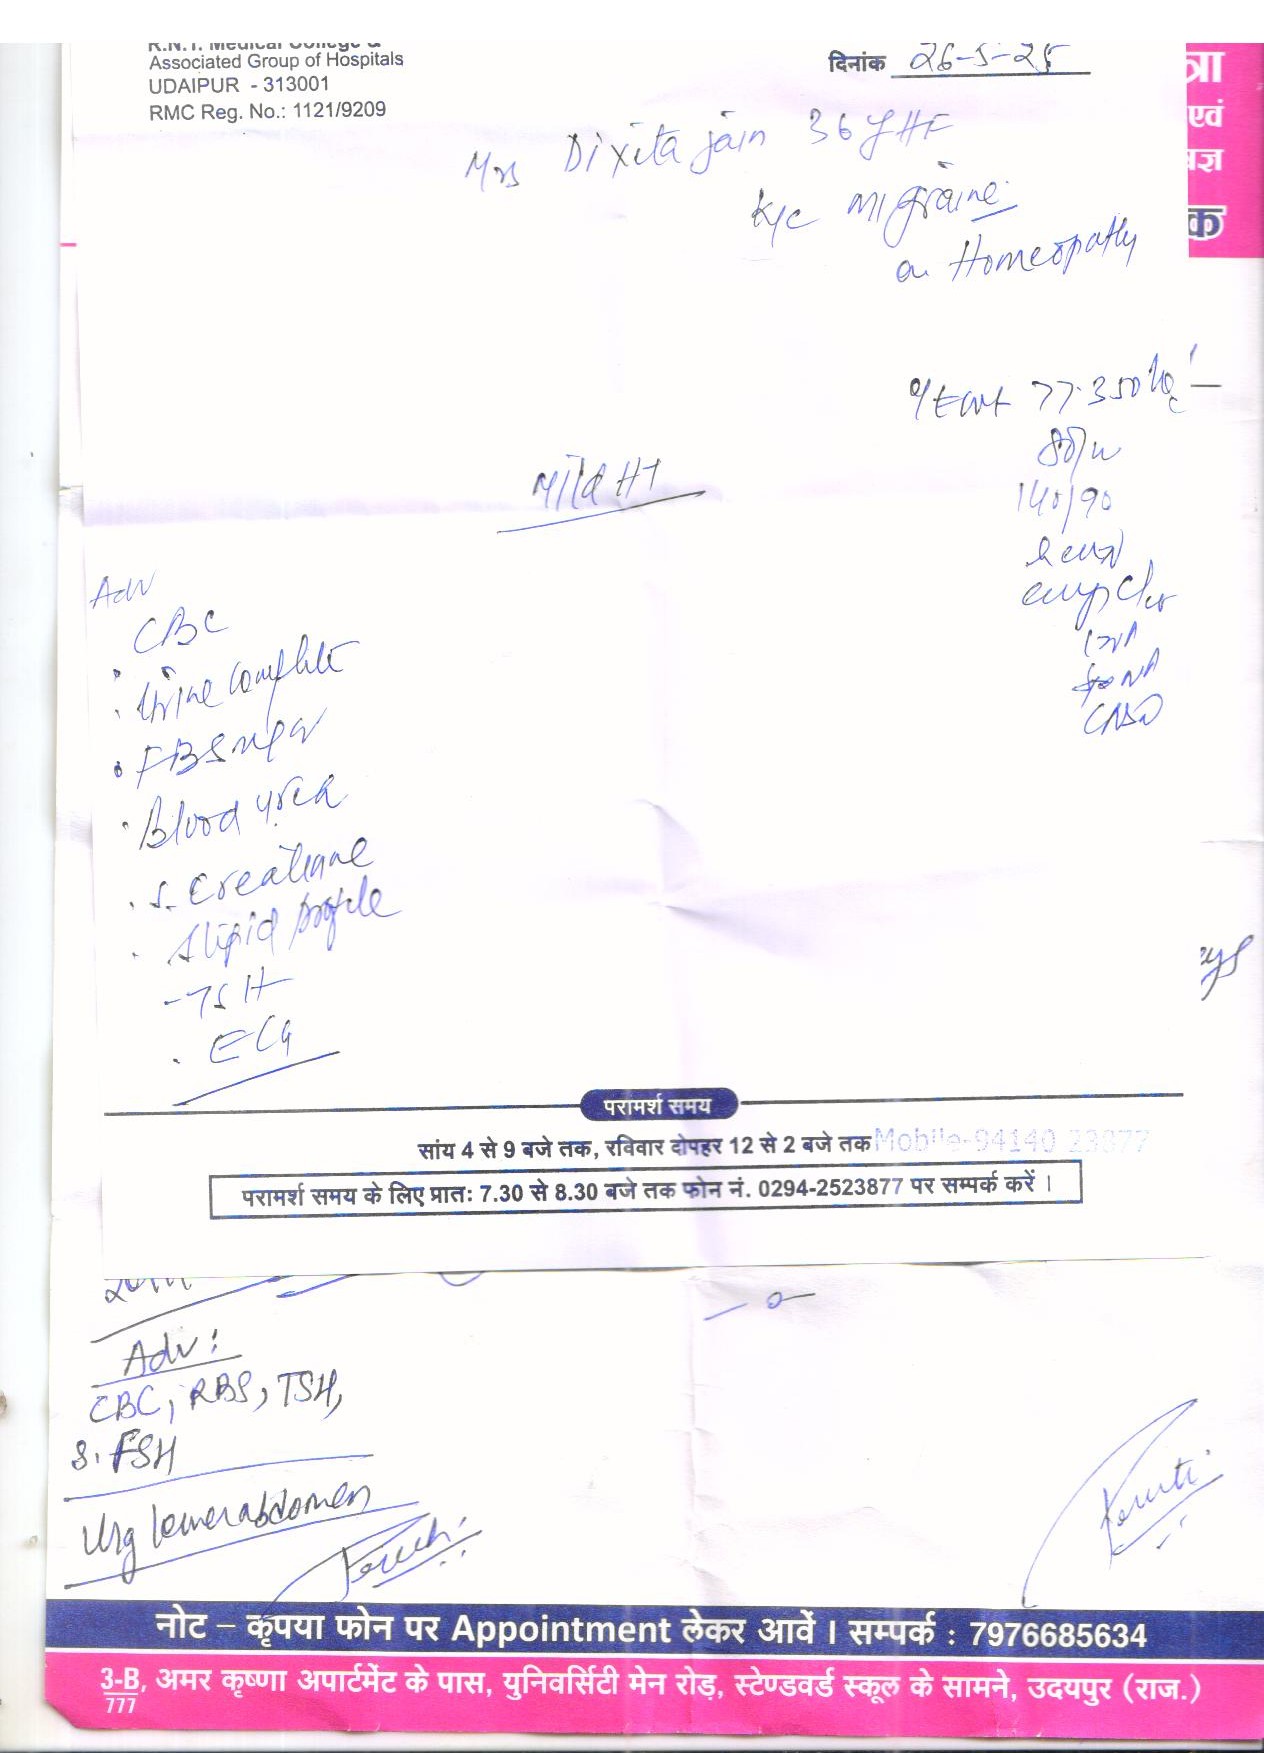 R.N.T. Medical College &
Associated Group of Hospitals
UDAIPUR - 313001
RMC Reg. No.: 1121/9209
दिनांक 26-5-25
त्रा
एवं
क
Mrs Dixita Jain 36 y HF
K/c Migraine
on Homeopathy
O/E wt 77.350 kg
140/90
Mild HT
Adv
CBC
Urine Complete
FBSugar
Blood Urea
S. Creatinine
S lipid profile
- TSH
ECG
परामर्श समय
सांय 4 से 9 बजे तक, रविवार दोपहर 12 से 2 बजे तक Mobile-94140 23877
परामर्श समय के लिए प्रातः 7.30 से 8.30 बजे तक फोन नं. 0294-2523877 पर सम्पर्क करें ।
Adv:
CBC, RBS, TSH,
S. FSH
Usg lower abdomen
नोट – कृपया फोन पर Appointment लेकर आवें । सम्पर्क : 7976685634
3-B, अमर कृष्णा अपार्टमेंट के पास, युनिवर्सिटी मेन रोड़, स्टेण्डवर्ड स्कूल के सामने, उदयपुर (राज.)
777